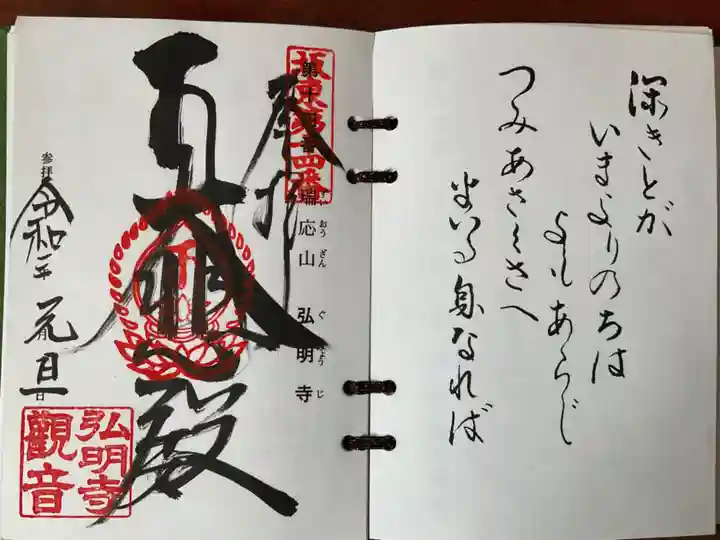 深きとが
いまよりのちは
よもあらじ
つみあさくさへ
まいる身なれば
坂東第十四番
奉拝
瑞応山 弘明寺
殿
参拝
令和二年 元旦
日
弘明寺
觀音